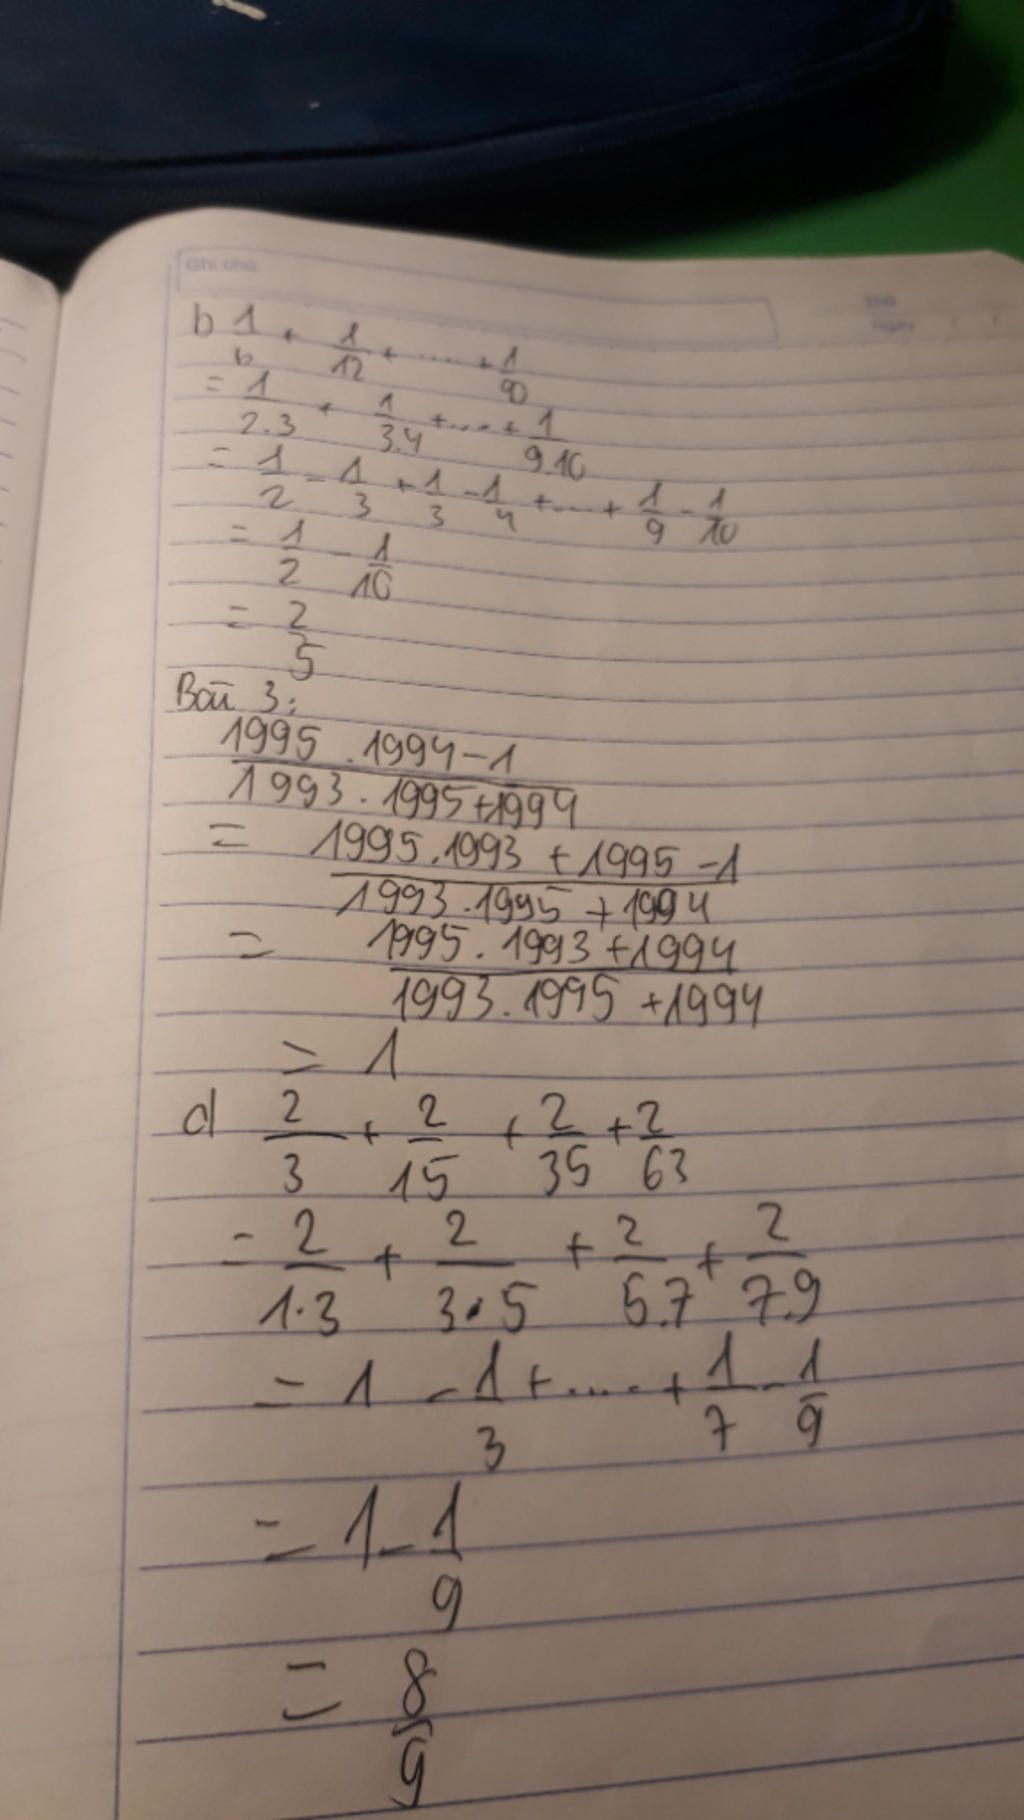 Ghi chú:
Thứ
Ngày
b 1/6 + 1/12 + .... + 1/90
= 1/2.3 + 1/3.4 + .... + 1/9.10
= 1/2 - 1/3 + 1/3 - 1/4 + .... + 1/9 - 1/10
= 1/2 - 1/10
= 2/5
Bài 3:
1995 . 1994 - 1 / 1993 . 1995 + 1994
= 1995 . 1993 + 1995 - 1 / 1993 . 1995 + 1994
= 1995 . 1993 + 1994 / 1993 . 1995 + 1994
= 1
d 2/3 + 2/15 + 2/35 + 2/63
= 2/1.3 + 2/3.5 + 2/5.7 + 2/7.9
= 1 - 1/3 + .... + 1/7 - 1/9
= 1 - 1/9
= 8/9